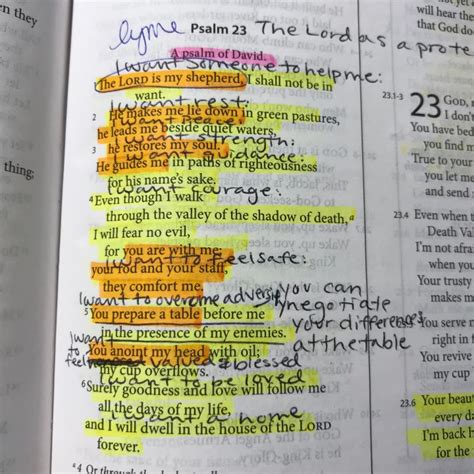 n they
thing;
lyme Psalm 23 The Lord as a prote
A psalm of David.
I want someone to help me:
The LORD is my shepherd, I shall not be in
want.
I want rest:
2 He makes me lie down in green pastures,
I want peace:
he leads me beside quiet waters,
I want strength:
3 he restores my soul.
I want guidance:
He guides me in paths of righteousness
for his name's sake.
I want courage:
4 Even though I walk
through the valley of the shadow of death,a
I will fear no evil,
for you are with me;
I want to feel safe:
your rod and your staff,
they comfort me.
I want to overcome adversity
you can
negotiate
your differences
at the table
5 You prepare a table before me
in the presence of my enemies.
I want
to
feel valued & blessed
You anoint my head with oil;
my cup overflows.
I want to be loved
6 Surely goodness and love will follow me
all the days of my life,
I want a home
and I will dwell in the house of the LORD
forever.
a 4 Or through the
will hear th
that God do
23.1-3
23 God,
I don't
You have bed
you find m
True to your
you let me
and send
23.4 Even when t
Death Val
I'm not afra
when yo
Your trusty
makes m
You serve
right in
You revive
my cup
23.6 Your beaut
every d
I'm back
for the